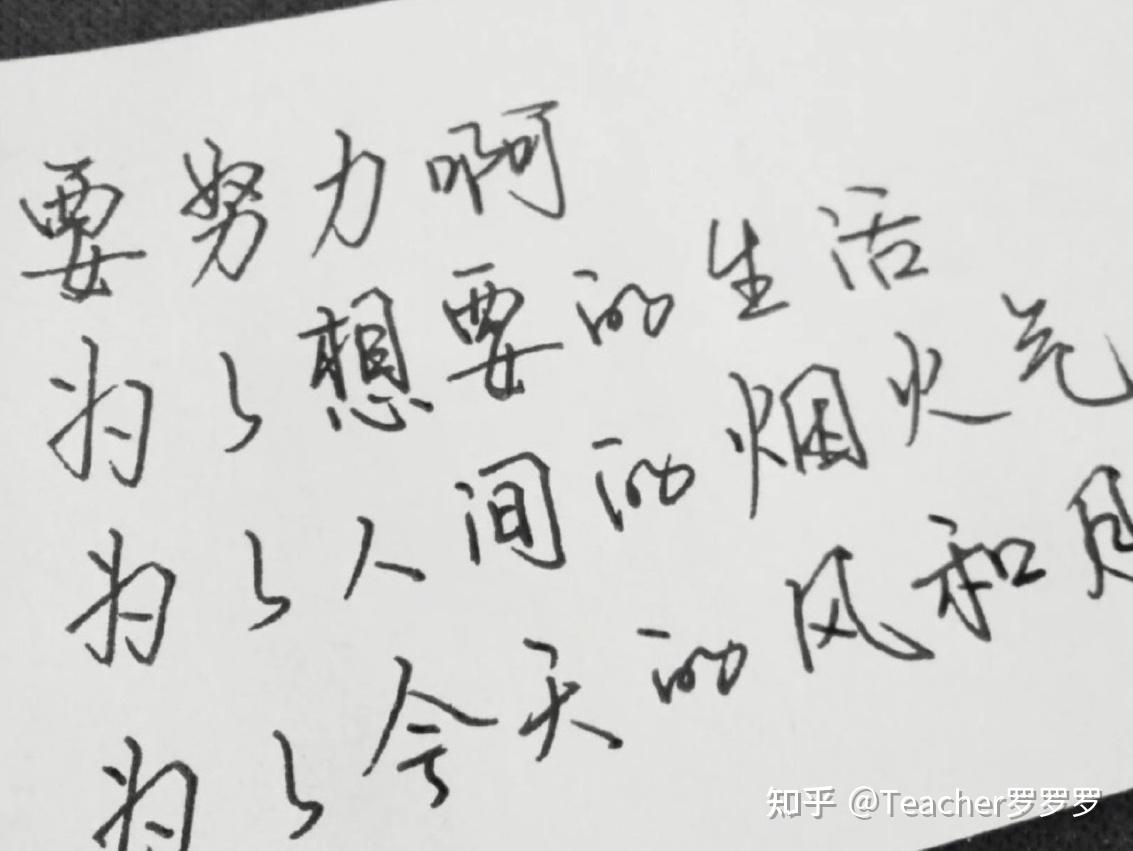 要努力啊
为了想要的生活
为了人间的烟火气
为了今天的风和月
知乎 @Teacher罗罗罗